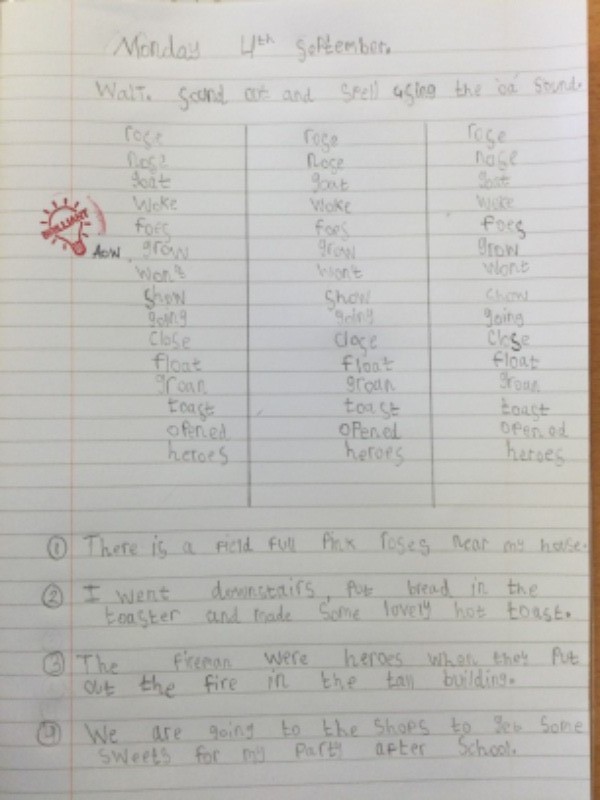 Monday 4th September.
Walt. Sound out and spell using the 'oa' sound.
rose rose rose
nose nose nose
goat goat goat
woke woke woke
foes foes foes
BRILLIANT
AOW grow grow grow
won't won't wont
show show show
going going going
close close close
float float float
groan groan groan
toast toast toast
opened opened opened
heroes heroes heroes
① There is a field full Pink roses near my house.
② I went downstairs, Put bread in the
toaster and made some lovely hot toast.
③ The fireman were heroes when they Put
out the fire in the tall building.
④ We are going to the shops to get some
sweets for my Party after School.